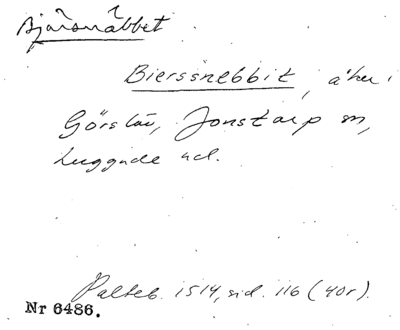 Bjärsnäbbet
Bierssnebbit, åker i
Görslöv, Jonstorp sn,
Luggude hd.
Palteb. 1514, sid. 116 (40r).
Nr 6486.